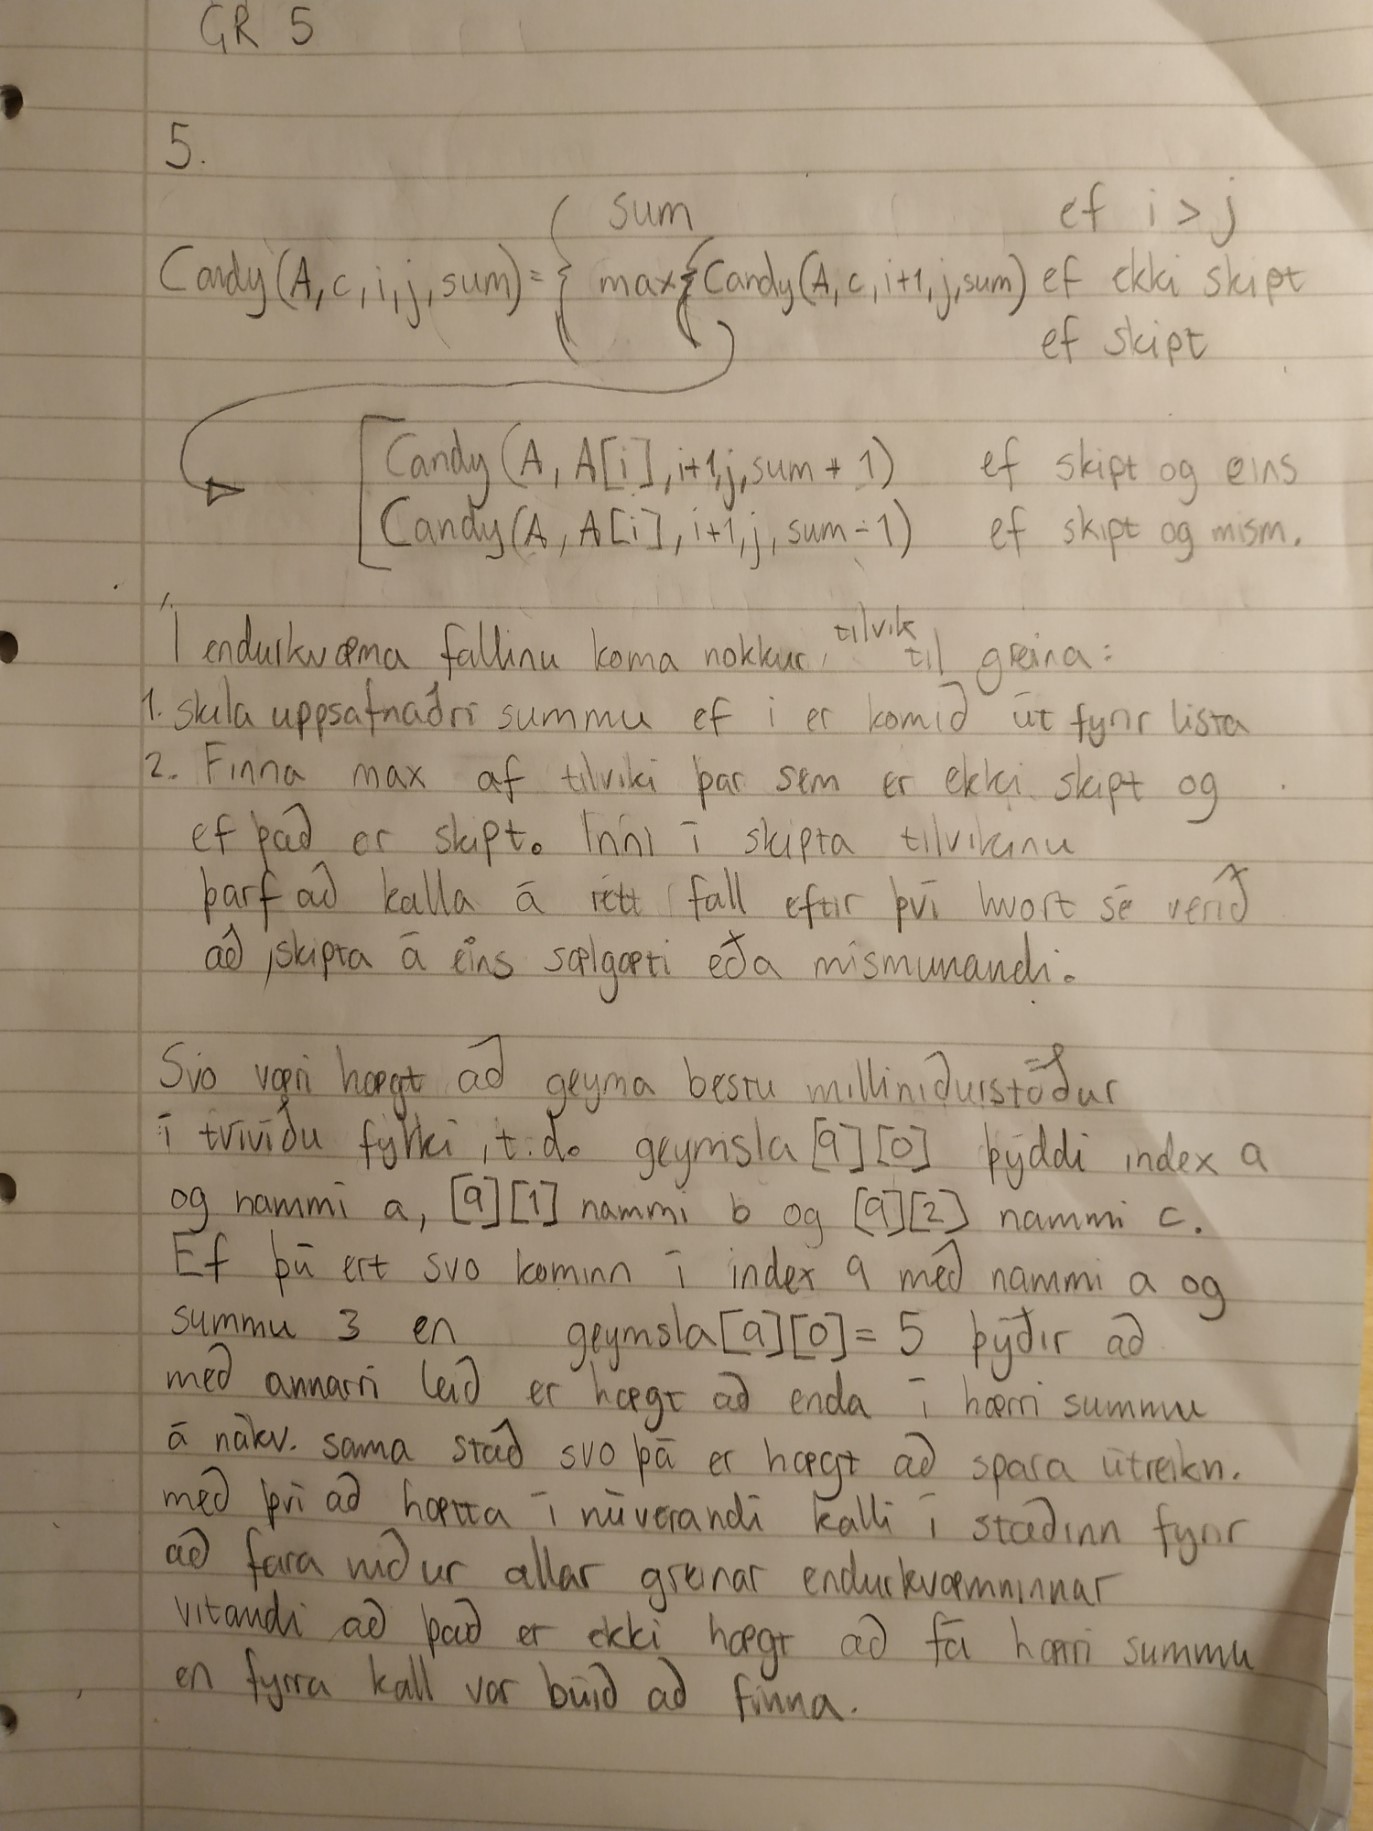 GR 5
5.
sum ef i > j
Candy(A, c, i, j, sum) = { max { Candy(A, c, i+1, j, sum) ef ekki skipt
ef skipt
Candy(A, A[i], i+1, j, sum + 1) ef skipt og eins
Candy(A, A[i], i+1, j, sum - 1) ef skipt og mism.
Í endurkvæma fallinu koma nokkur tilvik til greina:
1. skila uppsafnaðri summu ef i er komið út fyrir lista
2. Finna max af tilviki þar sem er ekki skipt og
ef það er skipt. Inni í skipta tilvikinu
þarf að kalla á rétt fall eftir því hvort sé verið
að skipta á eins sælgæti eða mismunandi.
Svo væri hægt að geyma bestu milliniðurstöður
í tvívíðu fylki, t.d. geymsla[9][0] þýddi index 9
og nammi a, [9][1] nammi b og [9][2] nammi c.
Ef þú ert svo kominn í index 9 með nammi a og
summu 3 en geymsla[9][0] = 5 þýðir að
með annarri leið er hægt að enda í hærri summu
á nákv. sama stað svo þá er hægt að spara útreikn.
með því að hætta í núverandi kalli í staðinn fyrir
að fara niður allar greinar endurkvæmninnar
vitandi að það er ekki hægt að fá hærri summu
en fyrra kall var búið að finna.